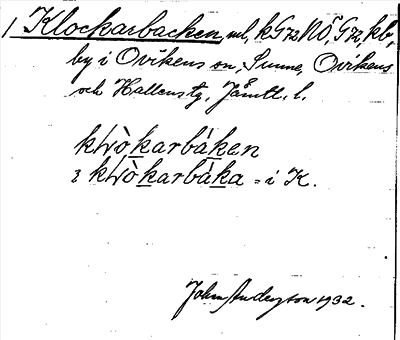 1 Klockarbacken, ml, k Grz NÖ, Grz, kb,
by i Ovikens sn, Sunne, Ovikens
och Hallens tg, Jämtl. l.
kɫòkarbáken
kɫòkarbáka = i K.
John Anderson 1932.